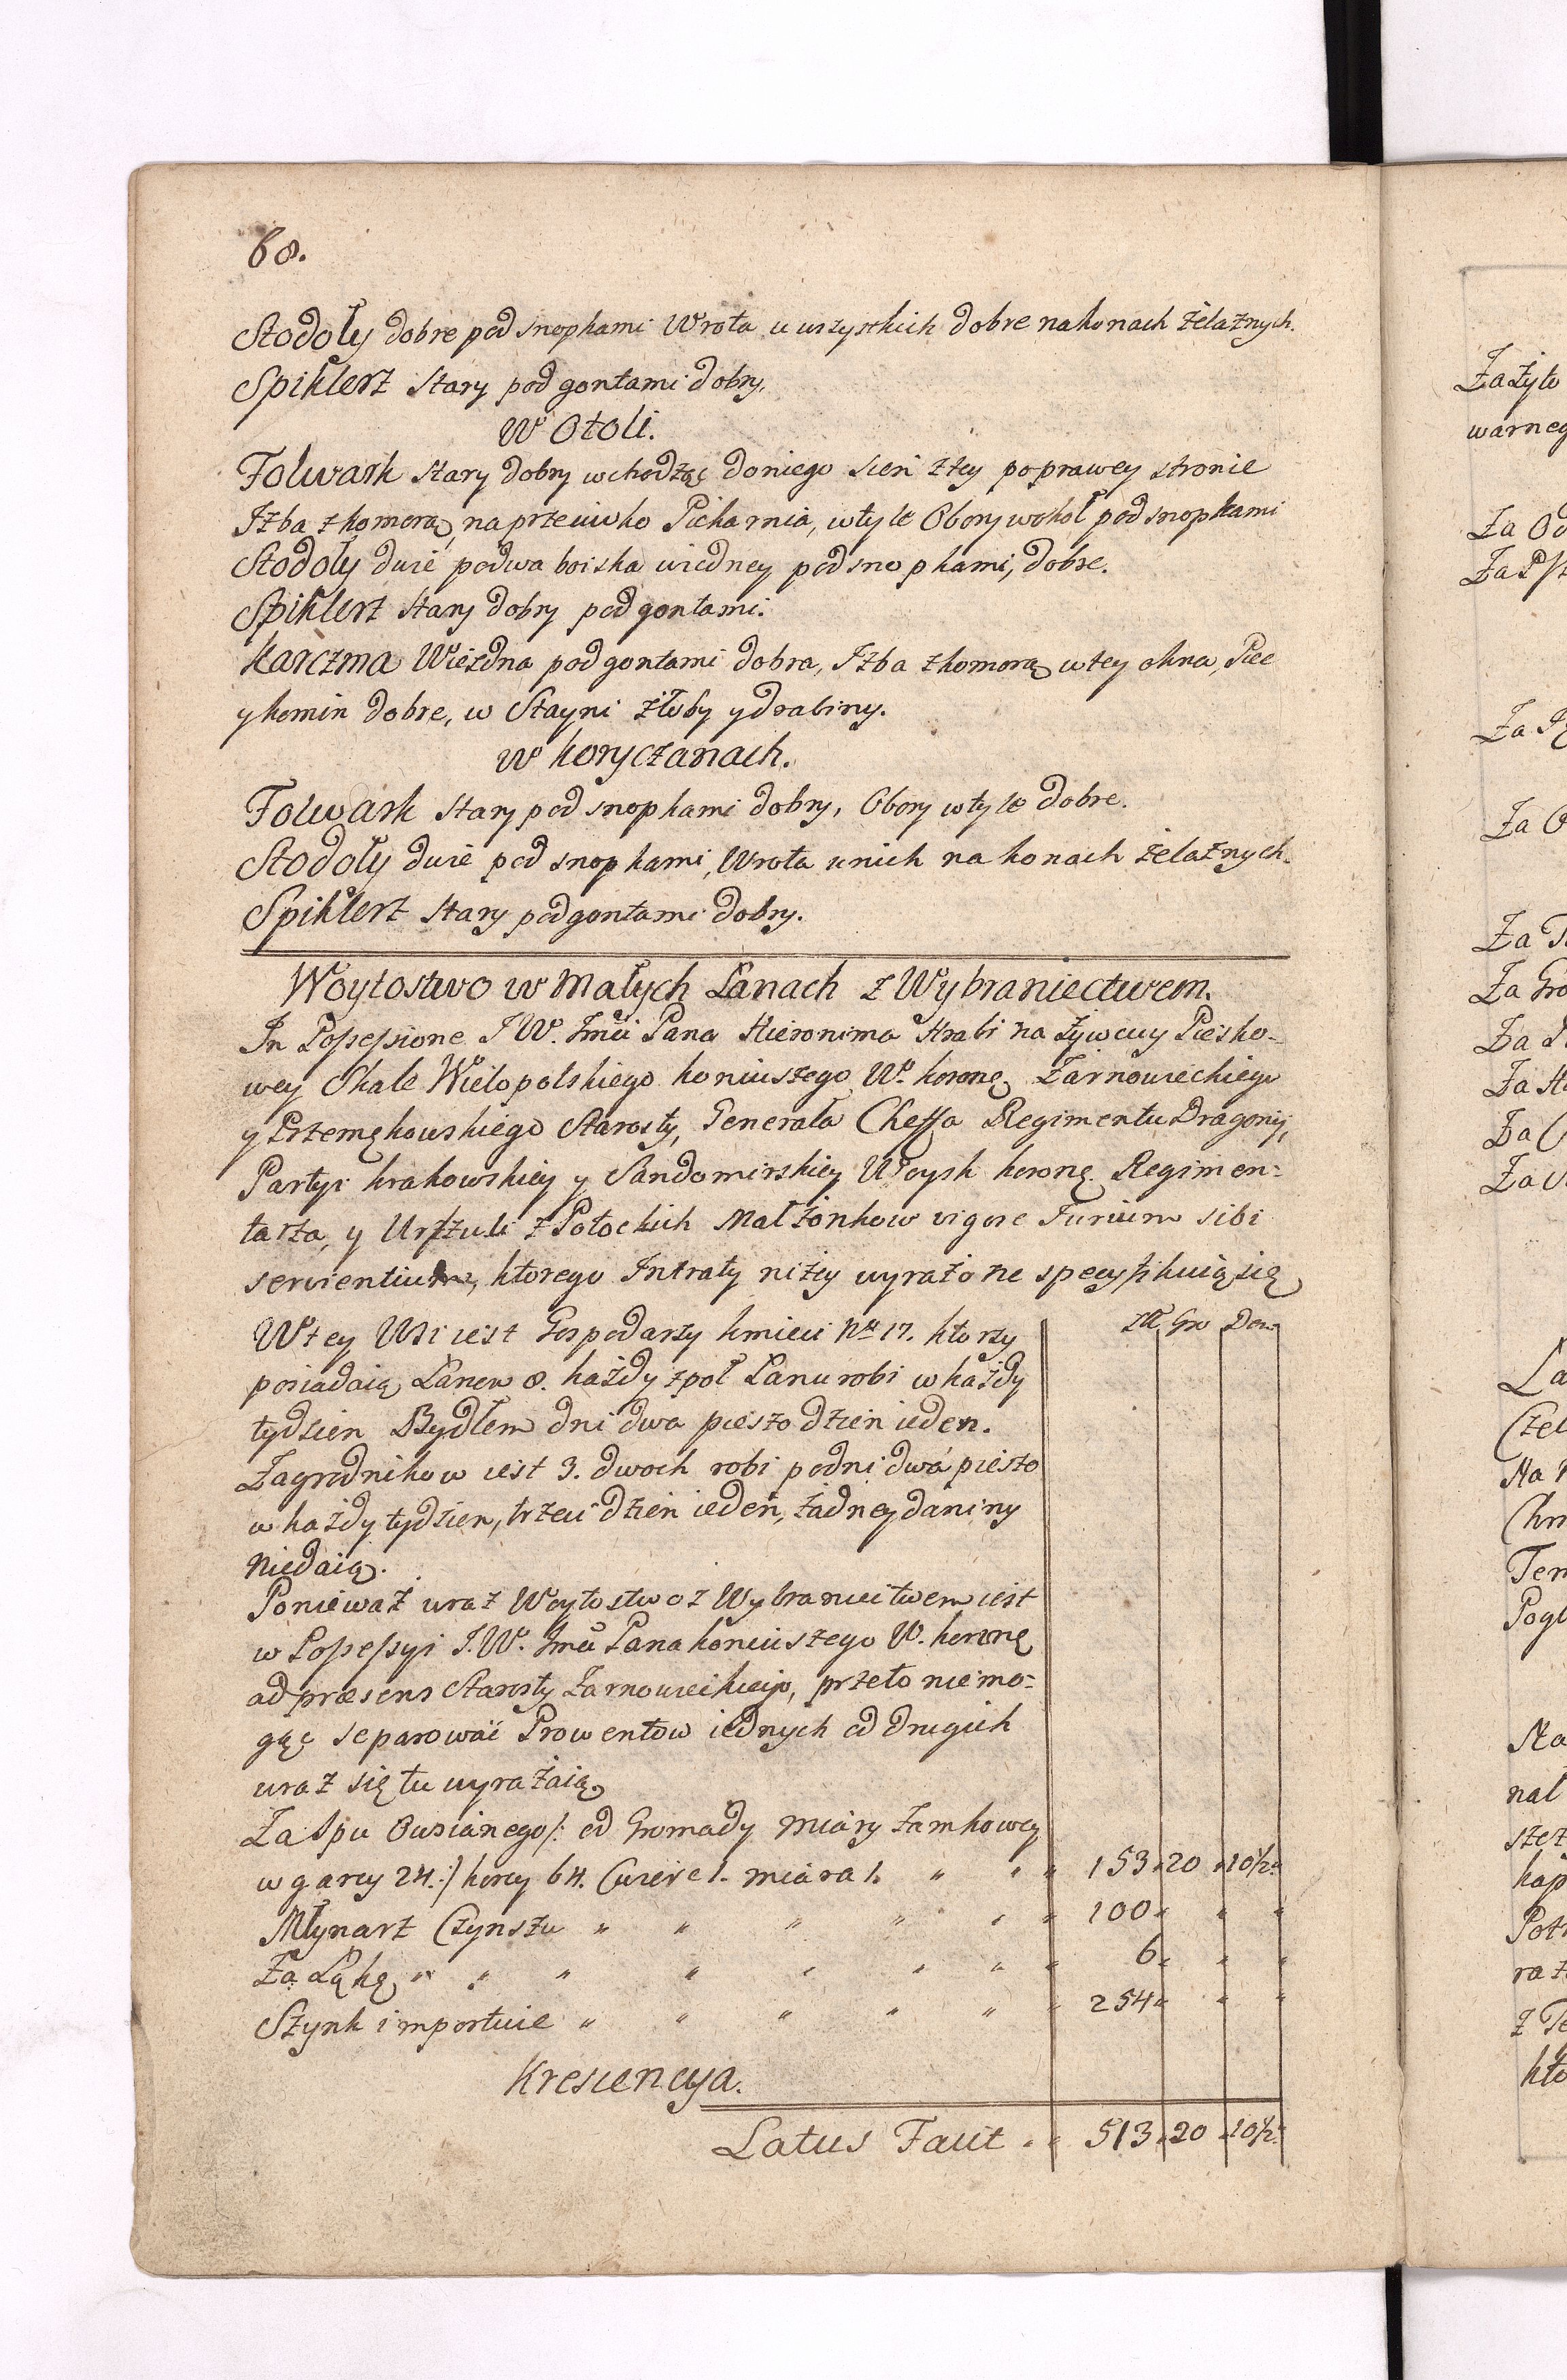 68.
Stodoły dobre pod snopkami Wrota u wszystkich dobre na konach żelaznych.
Spiklerz stary pod gontami dobry.
W Otoli.
Folwark stary dobry wchodząc do niego sień z tey po prawey stronie
Izba z komorą, naprzeciwko Piekarnia, w tyle Obory wokoł pod snopkami
Stodoły dwie po dwa boiska w iedney pod snopkami, dobre.
Spiklerz stary dobry pod gontami.
Karczma Wiezdna pod gontami dobra, Izba z komorą w tey okna, Piec
y komin dobre, w Stayni żłoby y drabiny.
w Koryczanach.
Folwark stary pod snopkami dobry, Obory w tyle dobre.
Stodoły dwie pod snopkami, Wrota u nich na konach żelaznych.
Spiklerz stary pod gontami dobry.
Woytostwo w Małych Łanach z Wybraniectwem.
In Possessione J W. Jmci Pana Hieronima Hrabi na Żywcu y Piesko-
wey Skale Wielopolskiego koniuszego W. koronę Żarnowieckiego
y Przemękowskiego Starosty, Generała Cheffa Regimentu Dragonij,
Partyi krakowskiey y Sandomirskiey Woysk koronę. Regimen-
tarza, y Urszuli z Potockich Małżonkow vigore Jurium sibi
servientium, ktorego Intraty niżey wyrażone specyfikuią się
W tey Wsi iest Gospodarzy kmieci Nro 17. ktorzy
posiadaią Łanow 8. każdy z poł Łanu robi w każdy
tydzien Bydłem dni dwa pieszo dzień ieden.
Zagrodnikow iest 3. dwoch robi po dni dwa pieszo
w każdy tydzien, trzeci dzień ieden, żadney daniny
niedaią.
Ponieważ wraz Woytostwo z Wybraniectwem iest
w Possessyi J. W. Jmci Pana koniuszego W. koronę
ad præsens Starosty Żarnowieckiego, przeto niemo-
gąc separować Prowentow iednych od drugich
wraz się tu wyrażaią
Złł Gro Den
Za Spu Owsianego /: od Gromady miary Zamkowey
w garcy 24. :/ korcy 64. Cwierć 1. miara 1. " " " 153 " 20 " 10½ "
Młynarz Czynszu " " " " " " 100 " " "
Za Łąkę " " " " " " " " 6 " " "
Szynk importuie " " " " " " 254 " " "
Krescencya.
Latus Facit " " 513 " 20 " 10½ "
Za żyto
warneg
Za
Za
Za
Za
Za
Za
Za
Za
Za
Za
Na
Tem
Pogl
nal
Pot
kto